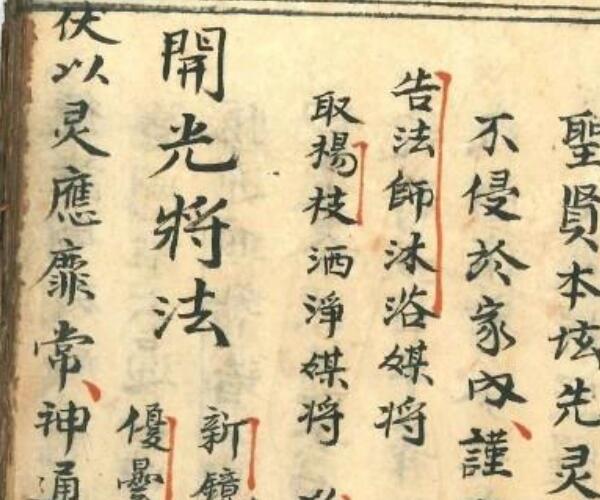 聖賢本垓先灵
不侵於家内謹
告法師沐浴媒将
取楊枝洒淨媒将
開光將法
新鏡
優曇
伏以灵應靡常神通